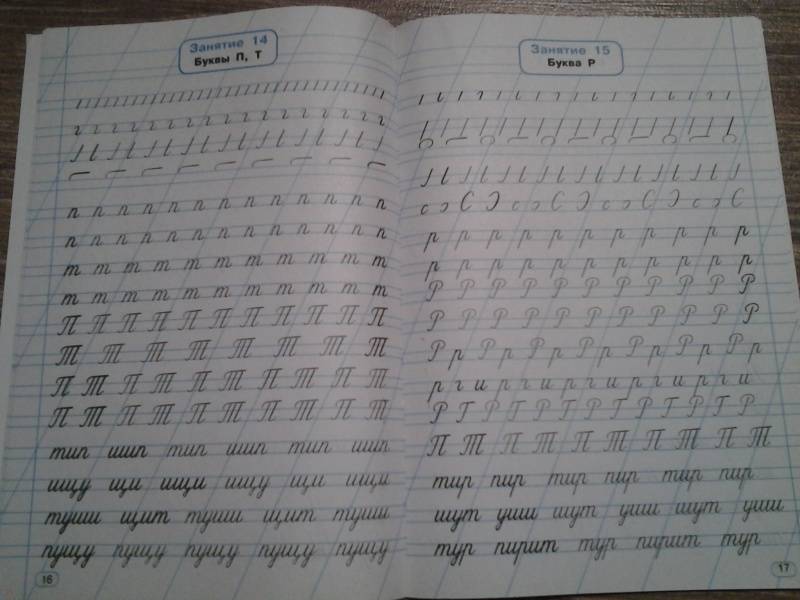 Занятие 14
Буквы П, Т
п п п п п п п п п п п
п п п п п п п п п п п
т т т т т т т т т т т
т т т т т т т т т т т
П П П П П П П П П П П
Т Т Т Т Т Т Т Т
П Т П Т П Т П Т П Т
П Т П Т П Т П Т П Т
тип шип тип шип тип шип
ищу щи ищи ищу щи ищи
туши щит туши щит туши
пущу пущу пущу пущу пущу
16
Занятие 15
Буква Р
р р р р р р р р р р р
р р р р р р р р р р р
Р Р Р Р Р Р Р Р Р Р Р
Р Р Р Р Р Р Р Р Р Р Р
Р р Р р Р р Р р Р р Р р
р г и р г и р г и р г и
Р Г Р Г Р Г Р Г Р Г Р Г Р
П Т П Т П Т П Т П Т
тир пир тир пир тир пир
шут уши шут уши шут уши
тур пирит тур пирит тур
17